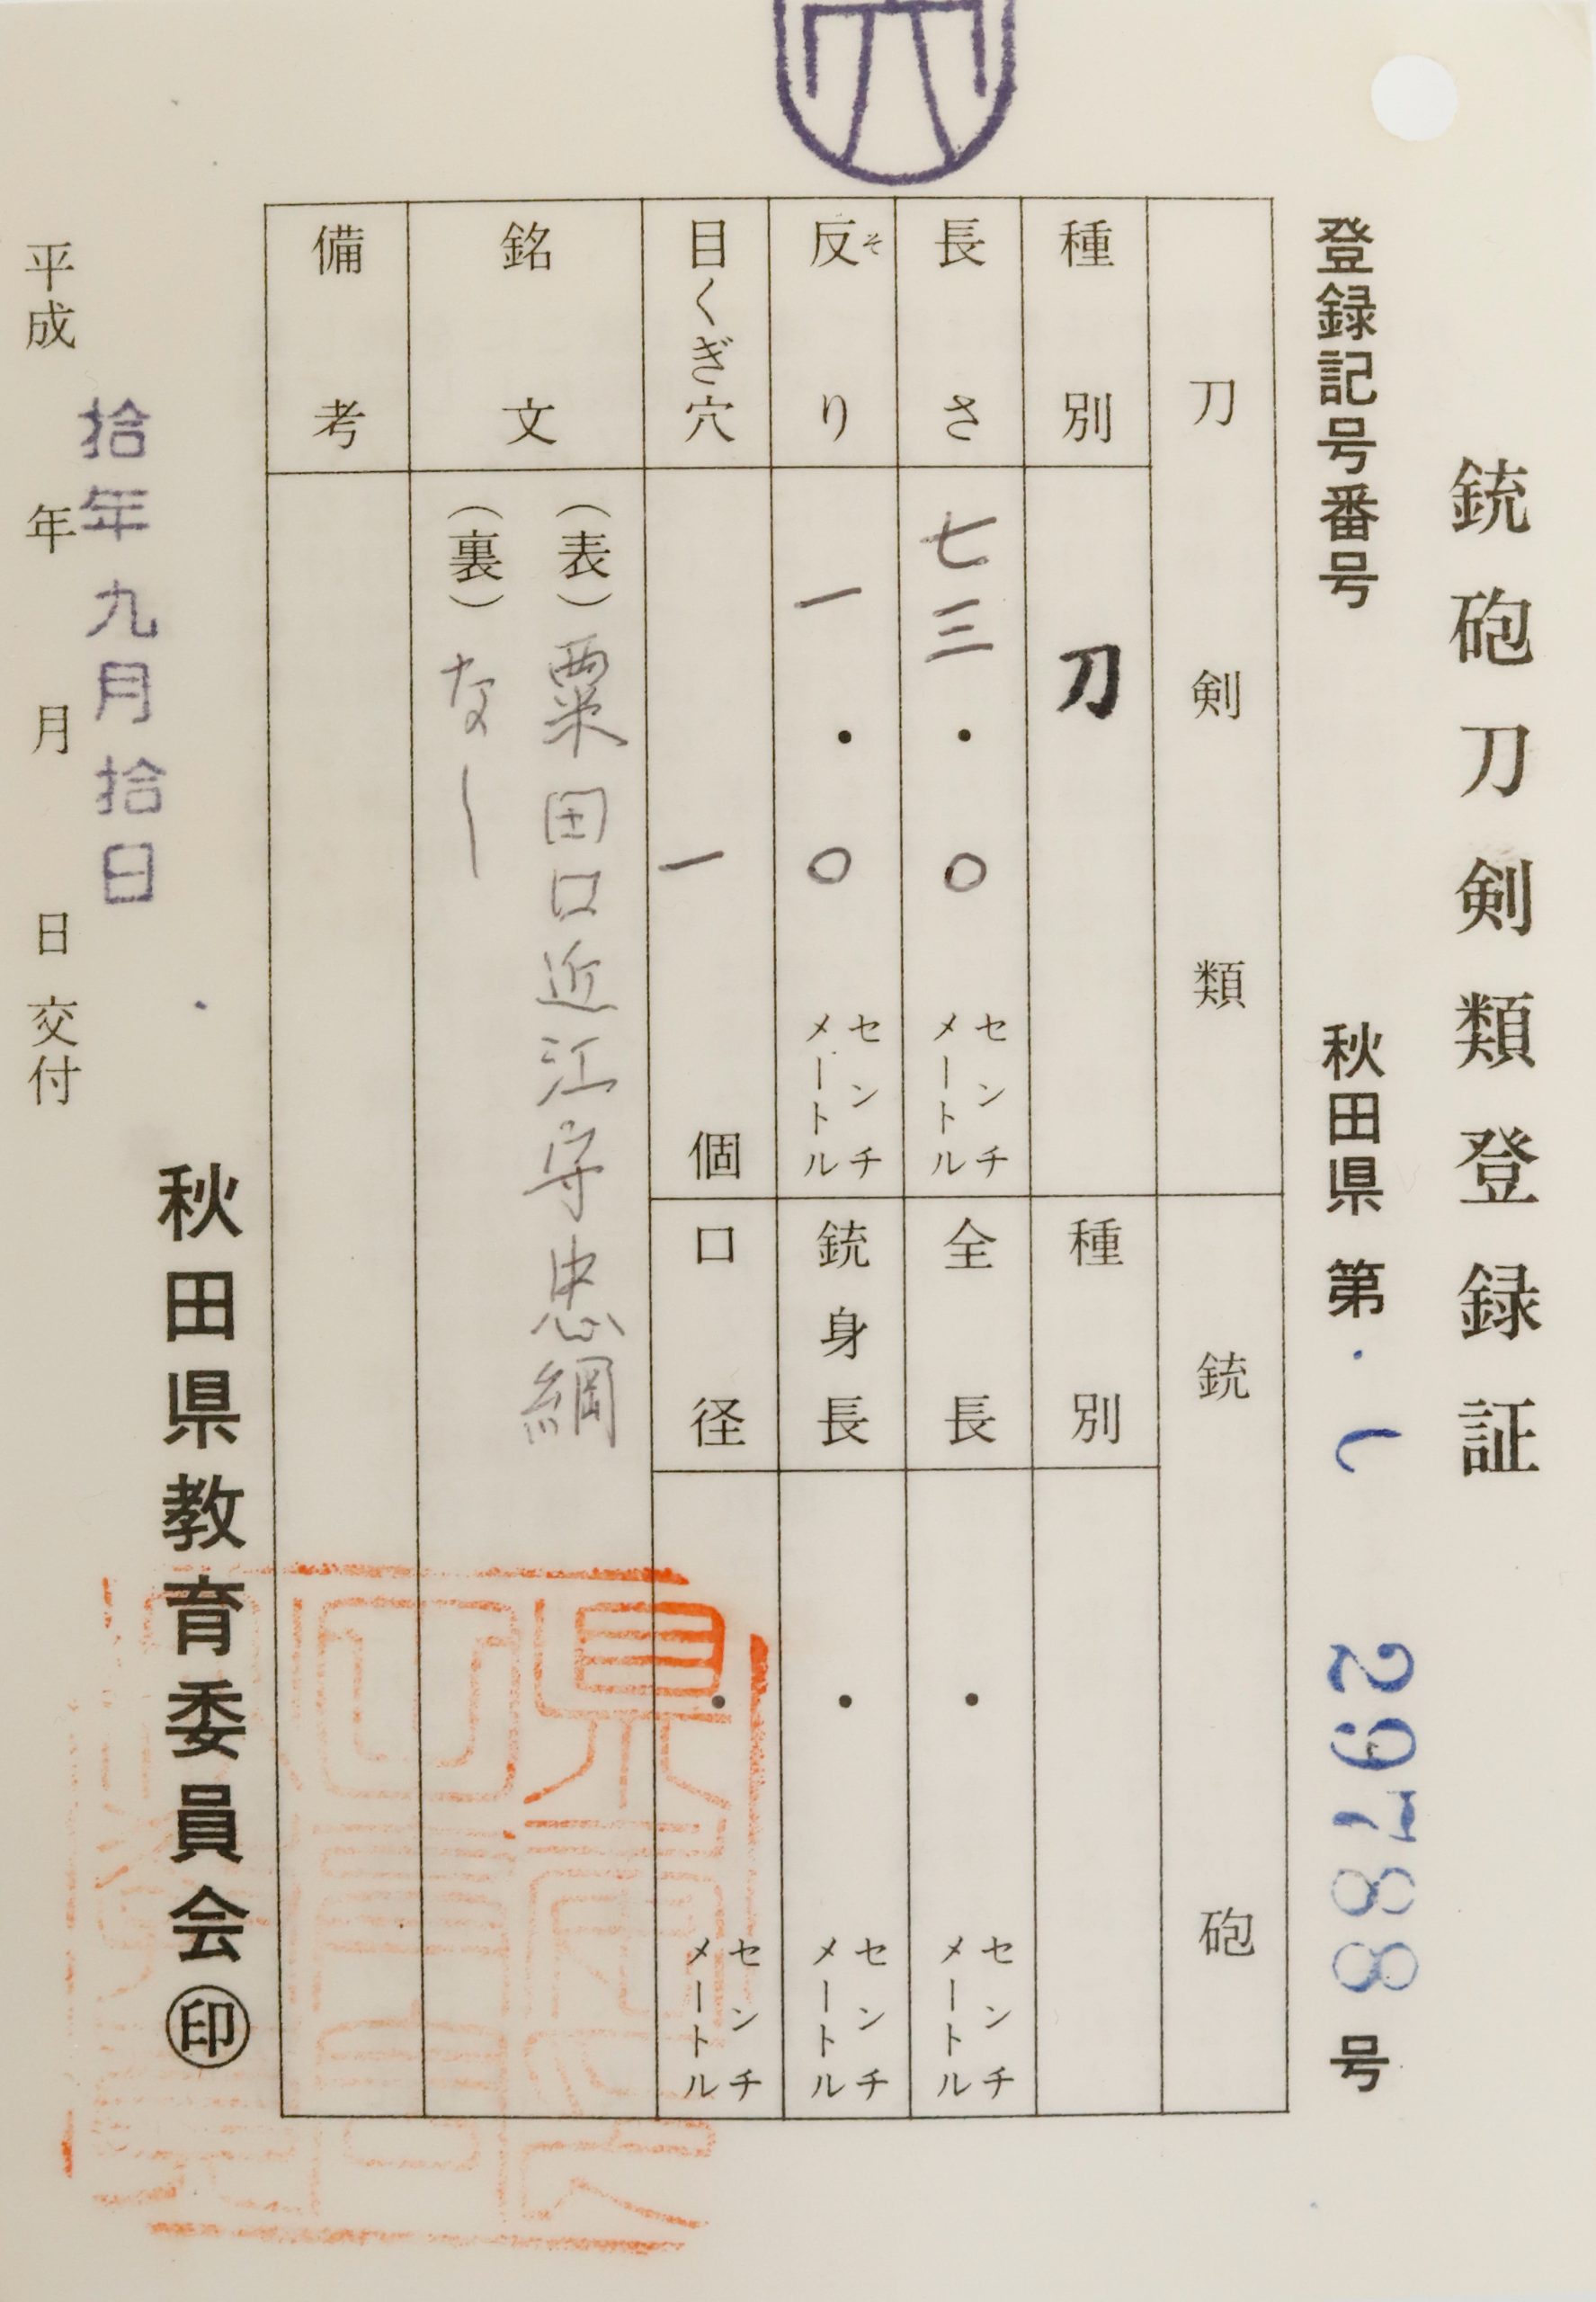 銃砲刀剣類登録証
登録記号番号 秋田県 第 し 29788 号
刀剣類 銃砲
種別 刀 種別
長さ 七三・〇 センチメートル 全長 ・ センチメートル
反り そ 一・〇 センチメートル 銃身長 ・ センチメートル
目くぎ穴 一 個 口径 ・ センチメートル
銘文 (表) 粟田口近江守忠綱
(裏) なし
備考
平成 年 月 日 交付
拾年九月拾日
秋田県教育委員会 印